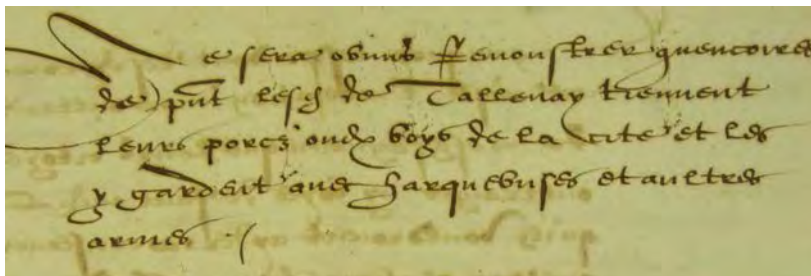 Ne sera obmis Remonstrer quencoires
de pnt lesd de Tallenay tiennent
leurs porcz oudx boys de la cite et les
y gardent auec harquebuses et aultres
armes